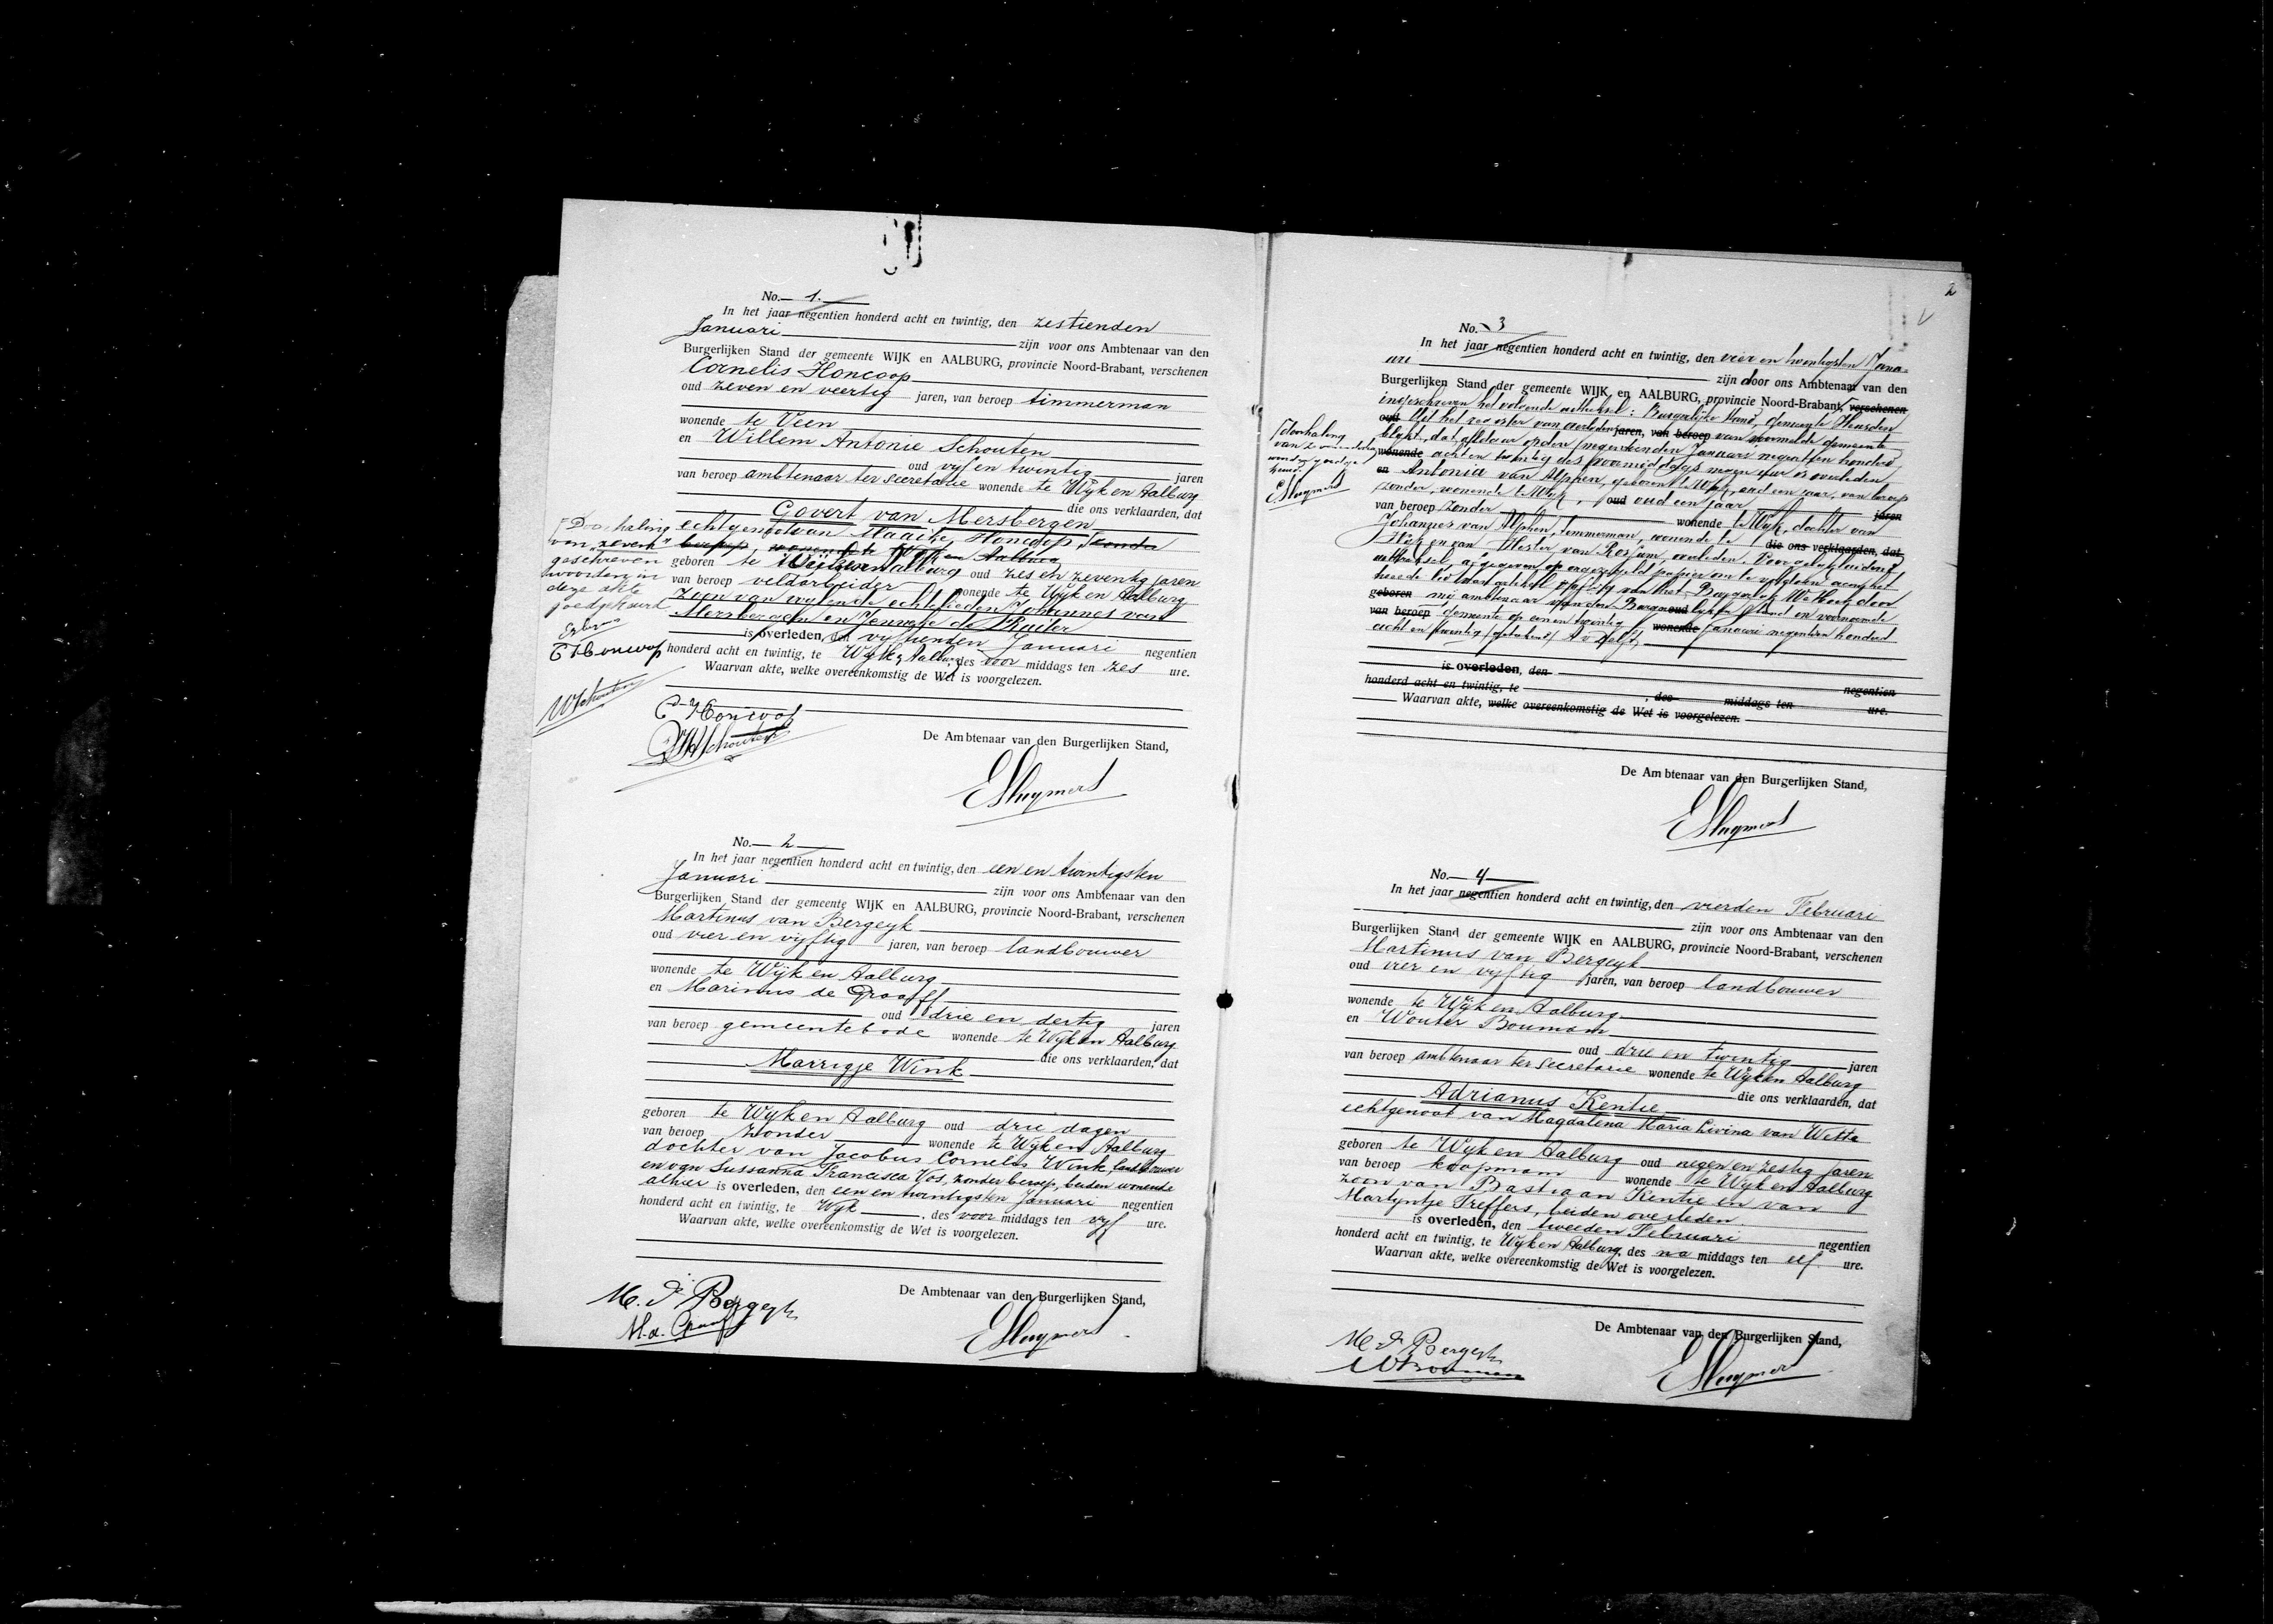 No. 1.
In het jaar negentien honderd acht en twintig, den zestienden
Januari zijn voor ons Ambtenaar van den
Burgerlijken Stand der gemeente WIJK en AALBURG, provincie Noord-Brabant, verschenen
Cornelis Honcoop
oud zeven en veertig jaren, van beroep timmerman
wonende te Veen
en Willem Antonie Schouten
oud vijf en twintig jaren
van beroep ambtenaar ter secretarie wonende te Wijk en Aalburg
die ons verklaarden, dat
Govert van Mersbergen
echtgenoot van Maaike Honcoop, zonder
beroep, wonende te Wijk en Aalburg
geboren te Wijk en Aalburg oud zes en zeventig jaren
van beroep veldarbeider wonende te Wijk en Aalburg
zoon van wijlen de echtelieden Johannes van
Mersbergen en Jenneke de Ruiter
is overleden, den vijftienden Januari negentien
honderd acht en twintig, te Wijk, Aalburg des voor middags ten zes ure.
Waarvan akte, welke overeenkomstig de Wet is voorgelezen.
Doorhaling
van zeven
geschreven
woorden in
deze akte
goedgekeurd
C Honcoop
WSchouten
C Honcoop
WASchouten
De Ambtenaar van den Burgerlijken Stand,
ESluymers
No. 2
In het jaar negentien honderd acht en twintig, den een en twintigsten
Januari zijn voor ons Ambtenaar van den
Burgerlijken Stand der gemeente WIJK en AALBURG, provincie Noord-Brabant, verschenen
Martinus van Bergeyk
oud vier en vijftig jaren, van beroep landbouwer
wonende te Wijk en Aalburg
en Marinus de Graaff
oud drie en dertig jaren
van beroep gemeentebode wonende te Wijk en Aalburg
die ons verklaarden, dat
Marrigje Wink
geboren te Wijk en Aalburg oud drie dagen
van beroep zonder wonende te Wijk en Aalburg
dochter van Jacobus Cornelis Wink, landbouwer
en van Sussanna Francisca Vos, zonder beroep, beiden wonende
alhier is overleden, den een en twintigsten Januari negentien
honderd acht en twintig, te Wijk, des voor middags ten vijf ure.
Waarvan akte, welke overeenkomstig de Wet is voorgelezen.
M. v. Bergeyk
M. d. Graaff
De Ambtenaar van den Burgerlijken Stand,
ESluymers
2
No. 3
In het jaar negentien honderd acht en twintig, den vier en twintigsten Janu-
ari zijn door ons Ambtenaar van den
Burgerlijken Stand der gemeente WIJK en AALBURG, provincie Noord-Brabant, verschenen
ingeschreven het volgende uittreksel: Burgerlijke Stand, gemeente Heusden
oud Uit het register van overleden jaren, van beroep van voormelde gemeente
blijkt, dat aldaar op den negentienden Januari negentien honderd
wonende acht en twintig des voormiddags negen uur is overleden
en Antonia van Alphen, geboren te Wijk, oud een jaar, van beroep
zonder, wonende te Wijk, oud oud een jaar jaren
van beroep zonder wonende te Wijk, dochter van
Johannes van Alphen, timmerman, wonende te die ons verklaarden, dat
Wijk en van Hester van Rossum, overleden. Voor gelijkluidend
uittreksel afgegeven op ongezegeld papier om te voldoen aan het
geboren mij ambtenaar van den Burger oud lijken Stand in voornoemde
van beroep gemeente op een en twintig wonende Januari negentien honderd
acht en twintig (getekend)
is overleden, den
negentien
honderd acht en twintig, te , des middags ten ure.
Waarvan akte, welke overeenkomstig de Wet is voorgelezen.
Doorhaling
ESluymers
De Ambtenaar van den Burgerlijken Stand,
ESluymers
No. 4
In het jaar negentien honderd acht en twintig, den vierden Februari
zijn voor ons Ambtenaar van den
Burgerlijken Stand der gemeente WIJK en AALBURG, provincie Noord-Brabant, verschenen
Martinus van Bergeyk
oud vier en vijftig jaren, van beroep landbouwer
wonende te Wijk en Aalburg
en Wouter Bouman
oud drie en twintig jaren
van beroep ambtenaar ter secretarie wonende te Wijk en Aalburg
die ons verklaarden, dat
Adrianus Kentie
echtgenoot van Magdalena Maria Livina van Wette
geboren te Wijk en Aalburg oud negen en zestig jaren
van beroep koopman wonende te Wijk en Aalburg
zoon van Bastiaan Kentie en van
Martijntje Treffers, beiden overleden.
is overleden, den tweeden Februari negentien
honderd acht en twintig, te Wijk en Aalburg, des na middags ten elf ure.
Waarvan akte, welke overeenkomstig de Wet is voorgelezen.
M v Bergeyk
WBouman
De Ambtenaar van den Burgerlijken Stand,
ESluymers